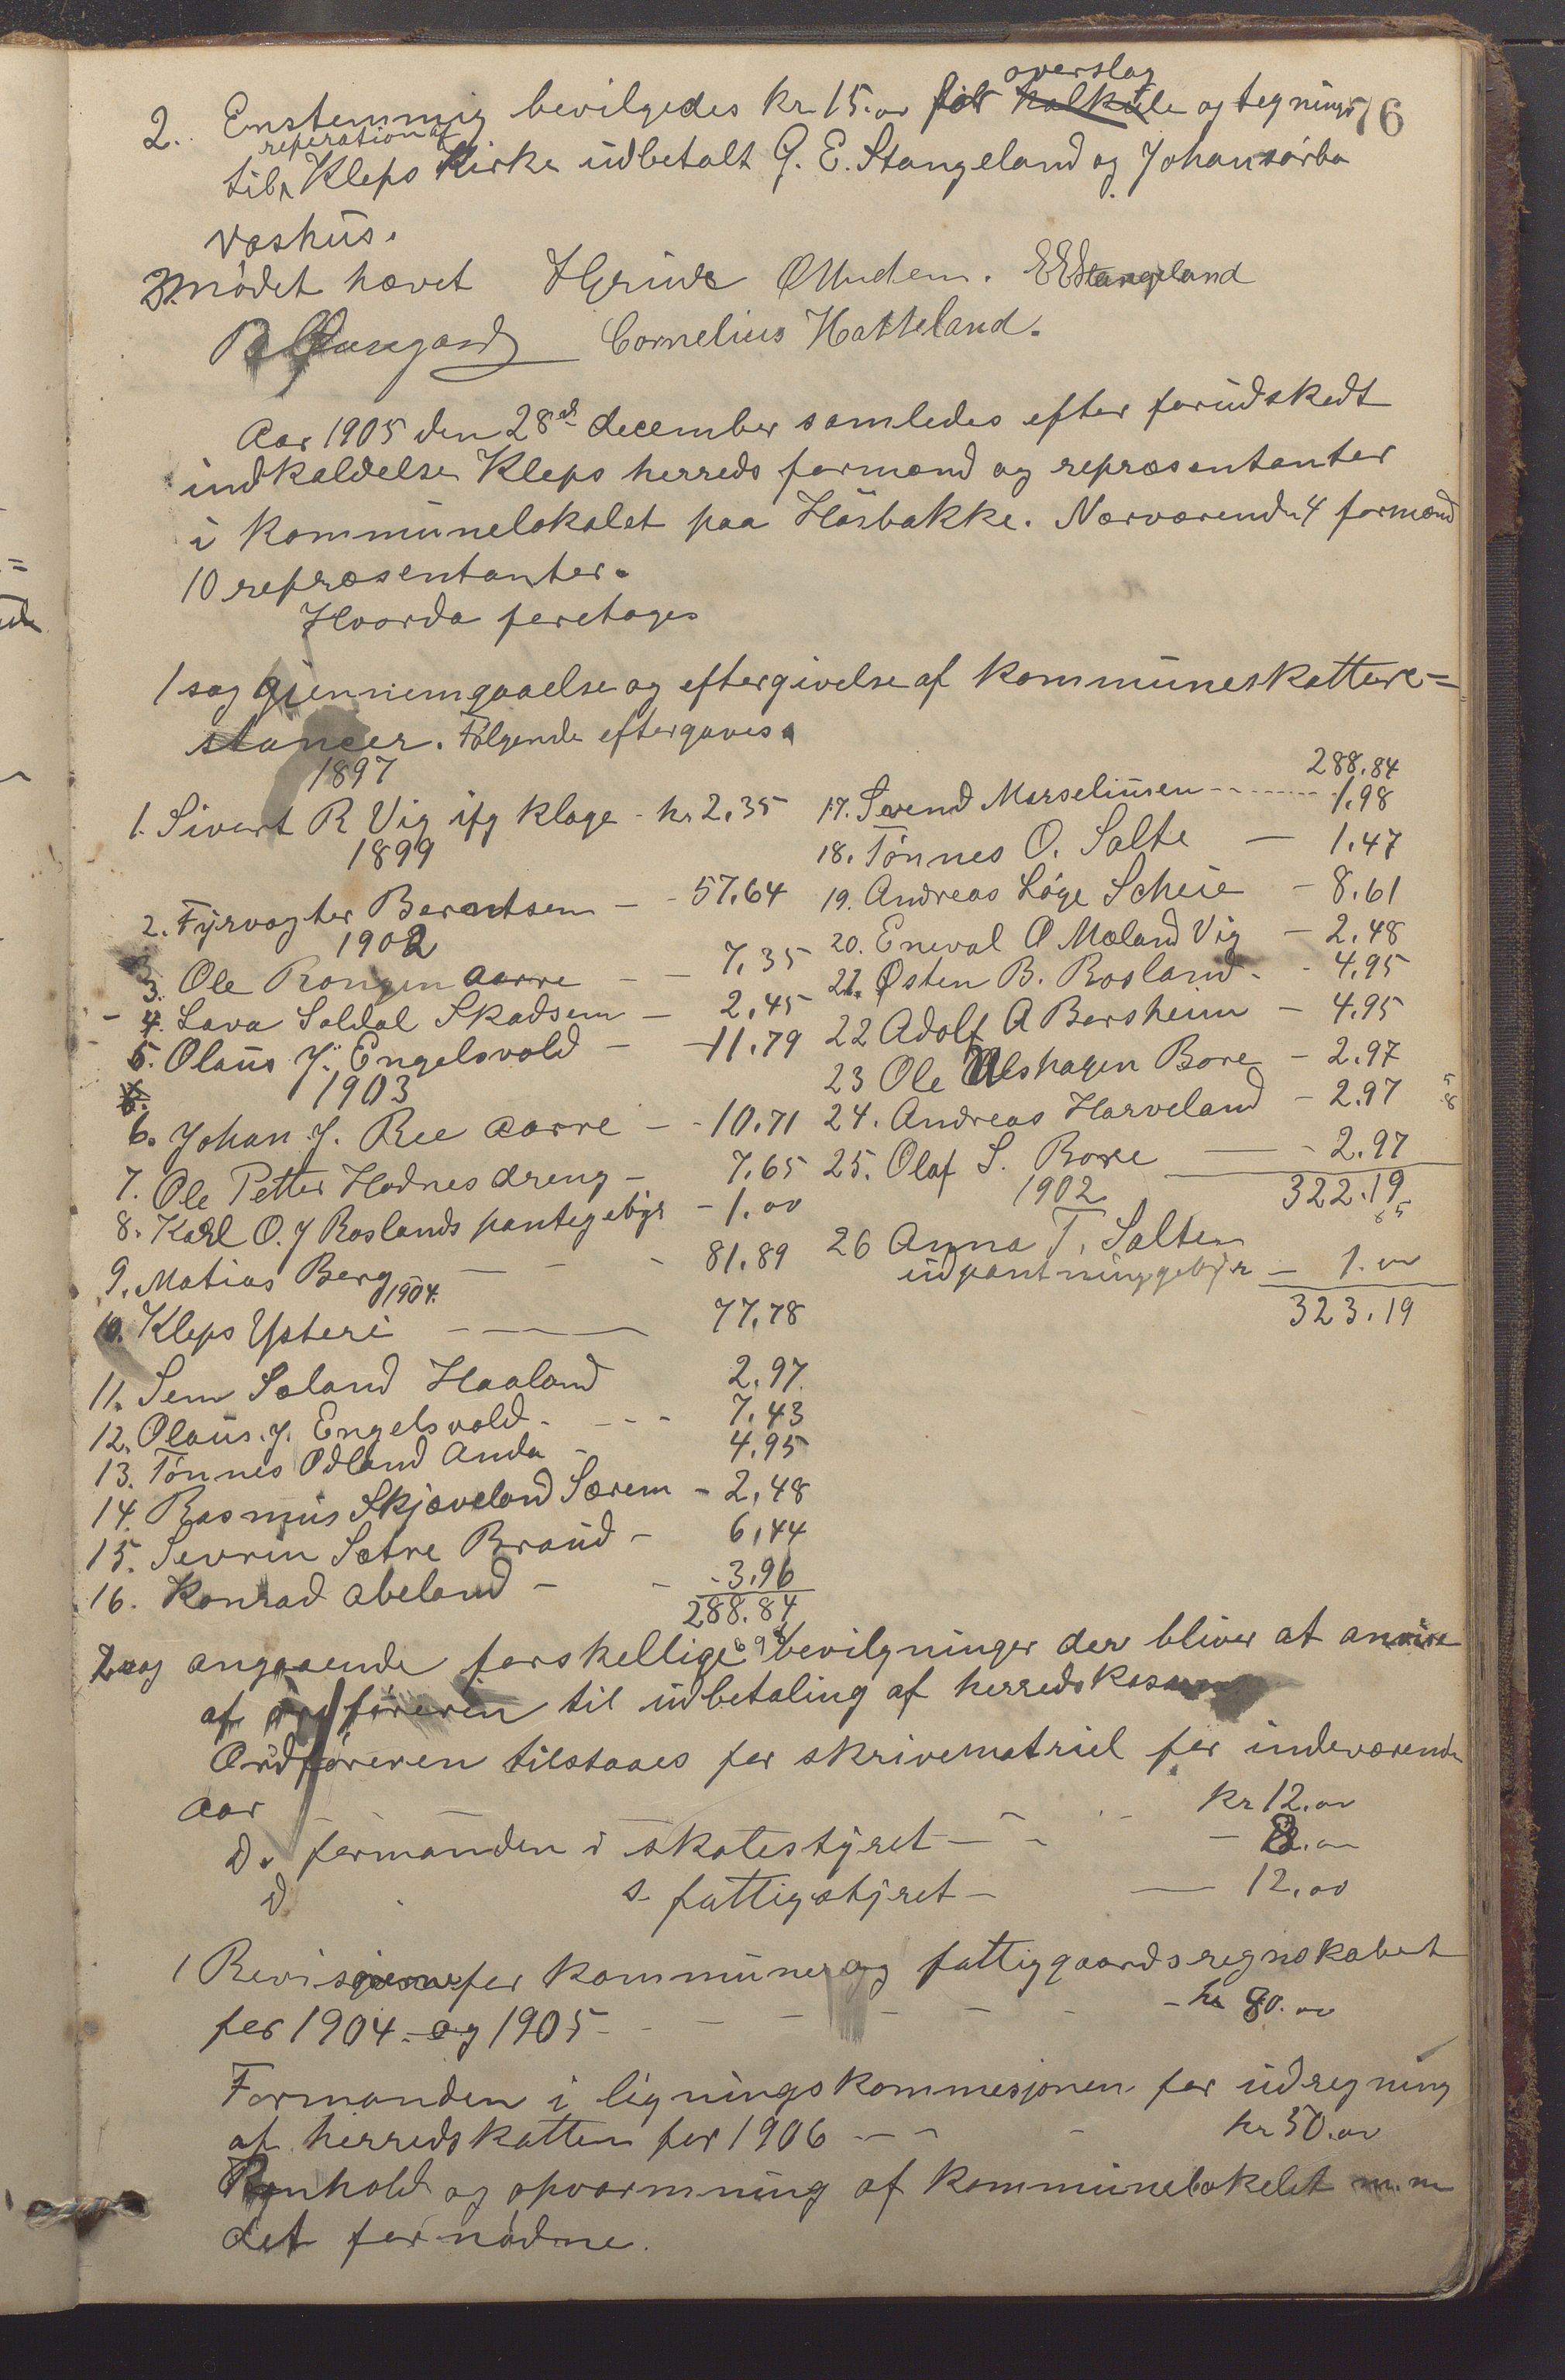 76
2. Enstemmig bevilgedes kr 15.00 for overslag og tegninger
til reperation af Kleps Kirke udbetalt G. E. Stangeland og Johan sørbø
Voshus.
3 mødet hævet HGrude OUndem. EEStangeland
Cornelius Hatteland.
Aar 1905 den 28de december samledes efter forudskedt
indkaldelse Kleps herreds formænd og repræsentanter
i kommunelokalet paa Hasbakke. Nærværende 4 formænd
10 repræsentanter.
Hvorda foretages
1 sag gjennemgaaelse og eftergivelse af kommuneskattere=
stancer. Følgende eftergaves.
1897
1. Sivert R Vig ifg klage - kr 2,35
1899
2. Fyrvogter Berentsen - - 57.64
1902
3. Ole Rongen aarre - - 7,35
4. Lava Soldal Skadsem - 2,45
5. Olaus J. Engelsvold - - 11.79
1903
6. Johan J. Ree aarre - - 10.71
7. Ole Petter Hodnes dreng - 7.65
8. Karl O. J Roslands pantegebyr - 1.00
9. Matias Berg - - - 81.89
1904.
10. Kleps Ysteri - 77.78
11. Sem Søland Haaland 2.97
12. Olaus. J. Engelsvold - - - - 7,43
13. Tönnes Odland Anda - 4.95
14. Rasmus Skjæveland Særem - 2,48
15. Sevrin Sætre Braud - 6,44
16. Konrad abeland - - - 3.96
288.84
288.84
17. Svend Marseliusen - - - 1,98
18. Tönnes O. Salte - 1.47
19. Andreas Løge Scheie - 8.61
20. Eneval O Mæland Vig - 2.48
21. Østen B. Rosland - - 4,95
22 Adolf A Bersheim - 4.95
23 Ole Ulshagen Bore - 2.97
24. Andreas Harveland - 2.97
25. Olaf S. Bore - 2.97
322.19
1902
26 Anna T. Salte
udpantninggebyr - 1.00
323.19
2 sag angaaende forskellige bevilgninger der bliver at anvise
af ordføreren til udbetaling af herredskassen
Ordføreren tilstaaes for skrivematriel for indeværende
aar kr 12.00
Do formanden i skatestyret - - 8.00
D s. fattigstyret - 12.00
1 Revisjonen for kommune og fattiggaardsregnskabet
for 1904. og 1905 - - - - kr 80.00
Formanden i ligningskommesjonen for udregning
af herredskatten for 1906 - - - kr 50.00
Renhold og opvarmning af kommunelokalet m.m
det fornødne.